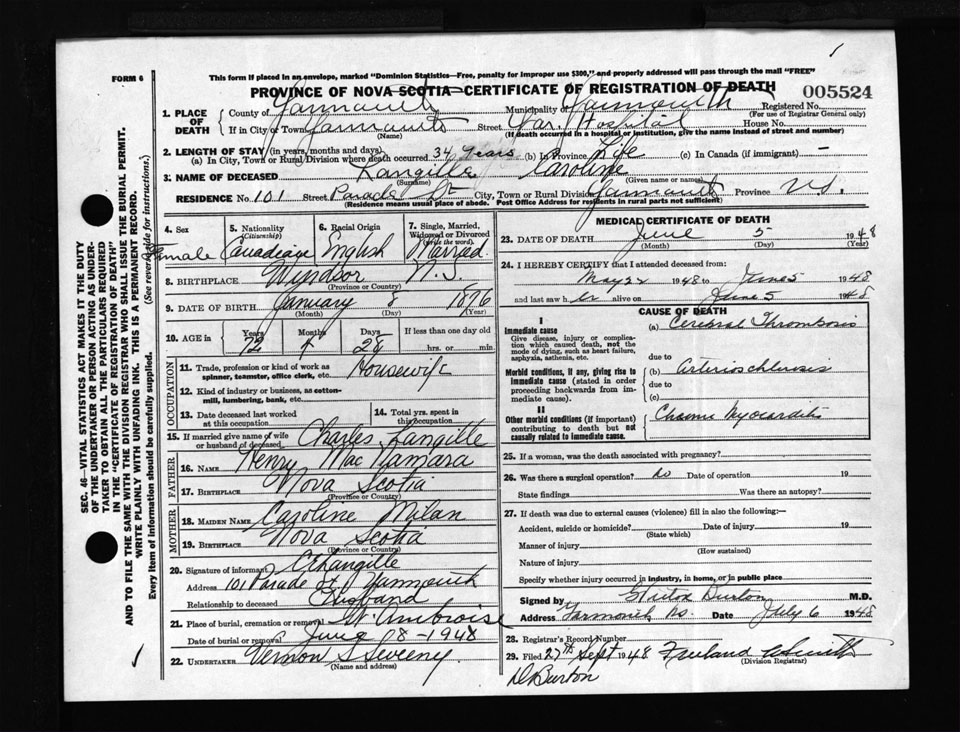 FORM 6
This form if placed in an envelope, marked "Dominion Statistics—Free, penalty for improper use $300," and properly addressed will pass through the mail "FREE"
PROVINCE OF NOVA SCOTIA—CERTIFICATE OF REGISTRATION OF DEATH
005524
1. PLACE OF DEATH
County of Yarmouth Municipality of Yarmouth Registered No.
(For use of Registrar General only)
If in City or Town Yarmouth Street Yar. Hospital House No.
(Name) (If death occurred in a hospital or institution, give the name instead of street and number)
2. LENGTH OF STAY (in years, months and days)
(a) In City, Town or Rural Division where death occurred 34 years (b) In Province Life (c) In Canada (if immigrant) —
3. NAME OF DECEASED Langille Caroline
(Surname) (Given name or names)
RESIDENCE No. 101 Street Parade St City, Town or Rural Division Yarmouth Province N.S.
(Residence means usual place of abode. Post Office Address for residents in rural parts not sufficient)
4. Sex
Female
5. Nationality
(Citizenship)
Canadian
6. Racial Origin
English
7. Single, Married, Widowed or Divorced
(write the word)
Married
8. BIRTHPLACE Windsor N.S.
(Province or Country)
9. DATE OF BIRTH January 8 1876
(Month) (Day) (Year)
10. AGE in
Years Months Days If less than one day old
72 28 hrs. or min.
OCCUPATION
11. Trade, profession or kind of work as spinner, teamster, office clerk, etc. Housewife
12. Kind of industry or business, as cotton-mill, lumbering, bank, etc.
13. Date deceased last worked at this occupation
14. Total yrs. spent in this occupation
15. If married give name of wife or husband of deceased Charles Langille
FATHER
16. Name Henry MacNamara
17. Birthplace Nova Scotia
(Province or Country)
MOTHER
18. Maiden Name Caroline Milan
19. Birthplace Nova Scotia
(Province or Country)
20. Signature of informant C Langille
Address 101 Parade St Yarmouth
Relationship to deceased Husband
21. Place of burial, cremation or removal St. Ambroise
Date of burial or removal June 8-1948
22. UNDERTAKER Vernon S Sweeny
(Name and address)
MEDICAL CERTIFICATE OF DEATH
23. DATE OF DEATH June 5 1948
(Month) (Day) (Year)
24. I HEREBY CERTIFY that I attended deceased from:
May 22 1948 to June 5 1948
and last saw her alive on June 5 1948
CAUSE OF DEATH
I
Immediate cause
Give disease, injury or complication which caused death, not the mode of dying, such as heart failure, asphyxia, asthenia, etc.
(a) Cerebral Thrombosis
due to
Morbid conditions, if any, giving rise to immediate cause (stated in order proceeding backwards from immediate cause).
(b) Arterioschlerosis
due to
(c)
II
Other morbid conditions (if important) contributing to death but not causally related to immediate cause.
Chronic Myocarditis
25. If a woman, was the death associated with pregnancy?
26. Was there a surgical operation? no Date of operation 19
State findings Was there an autopsy?
27. If death was due to external causes (violence) fill in also the following:—
Accident, suicide or homicide? Date of injury 19
(State which)
Manner of injury
(How sustained)
Nature of injury
Specify whether injury occurred in industry, in home, or in public place
Signed by Burton M.D.
Address Yarmouth, N.S. Date July 6 1948
28. Registrar's Record Number
29. Filed 27th Sept 1948
(Division Registrar)
D. Burton
SEC. 46—VITAL STATISTICS ACT MAKES IT THE DUTY OF THE UNDERTAKER OR PERSON ACTING AS UNDERTAKER TO OBTAIN ALL THE PARTICULARS REQUIRED IN THE "CERTIFICATE OF REGISTRATION OF DEATH" AND TO FILE THE SAME WITH THE DIVISION REGISTRAR WHO SHALL ISSUE THE BURIAL PERMIT.
WRITE PLAINLY WITH UNFADING INK. THIS IS A PERMANENT RECORD.
Every item of information should be carefully supplied. (See reverse side for instructions.)